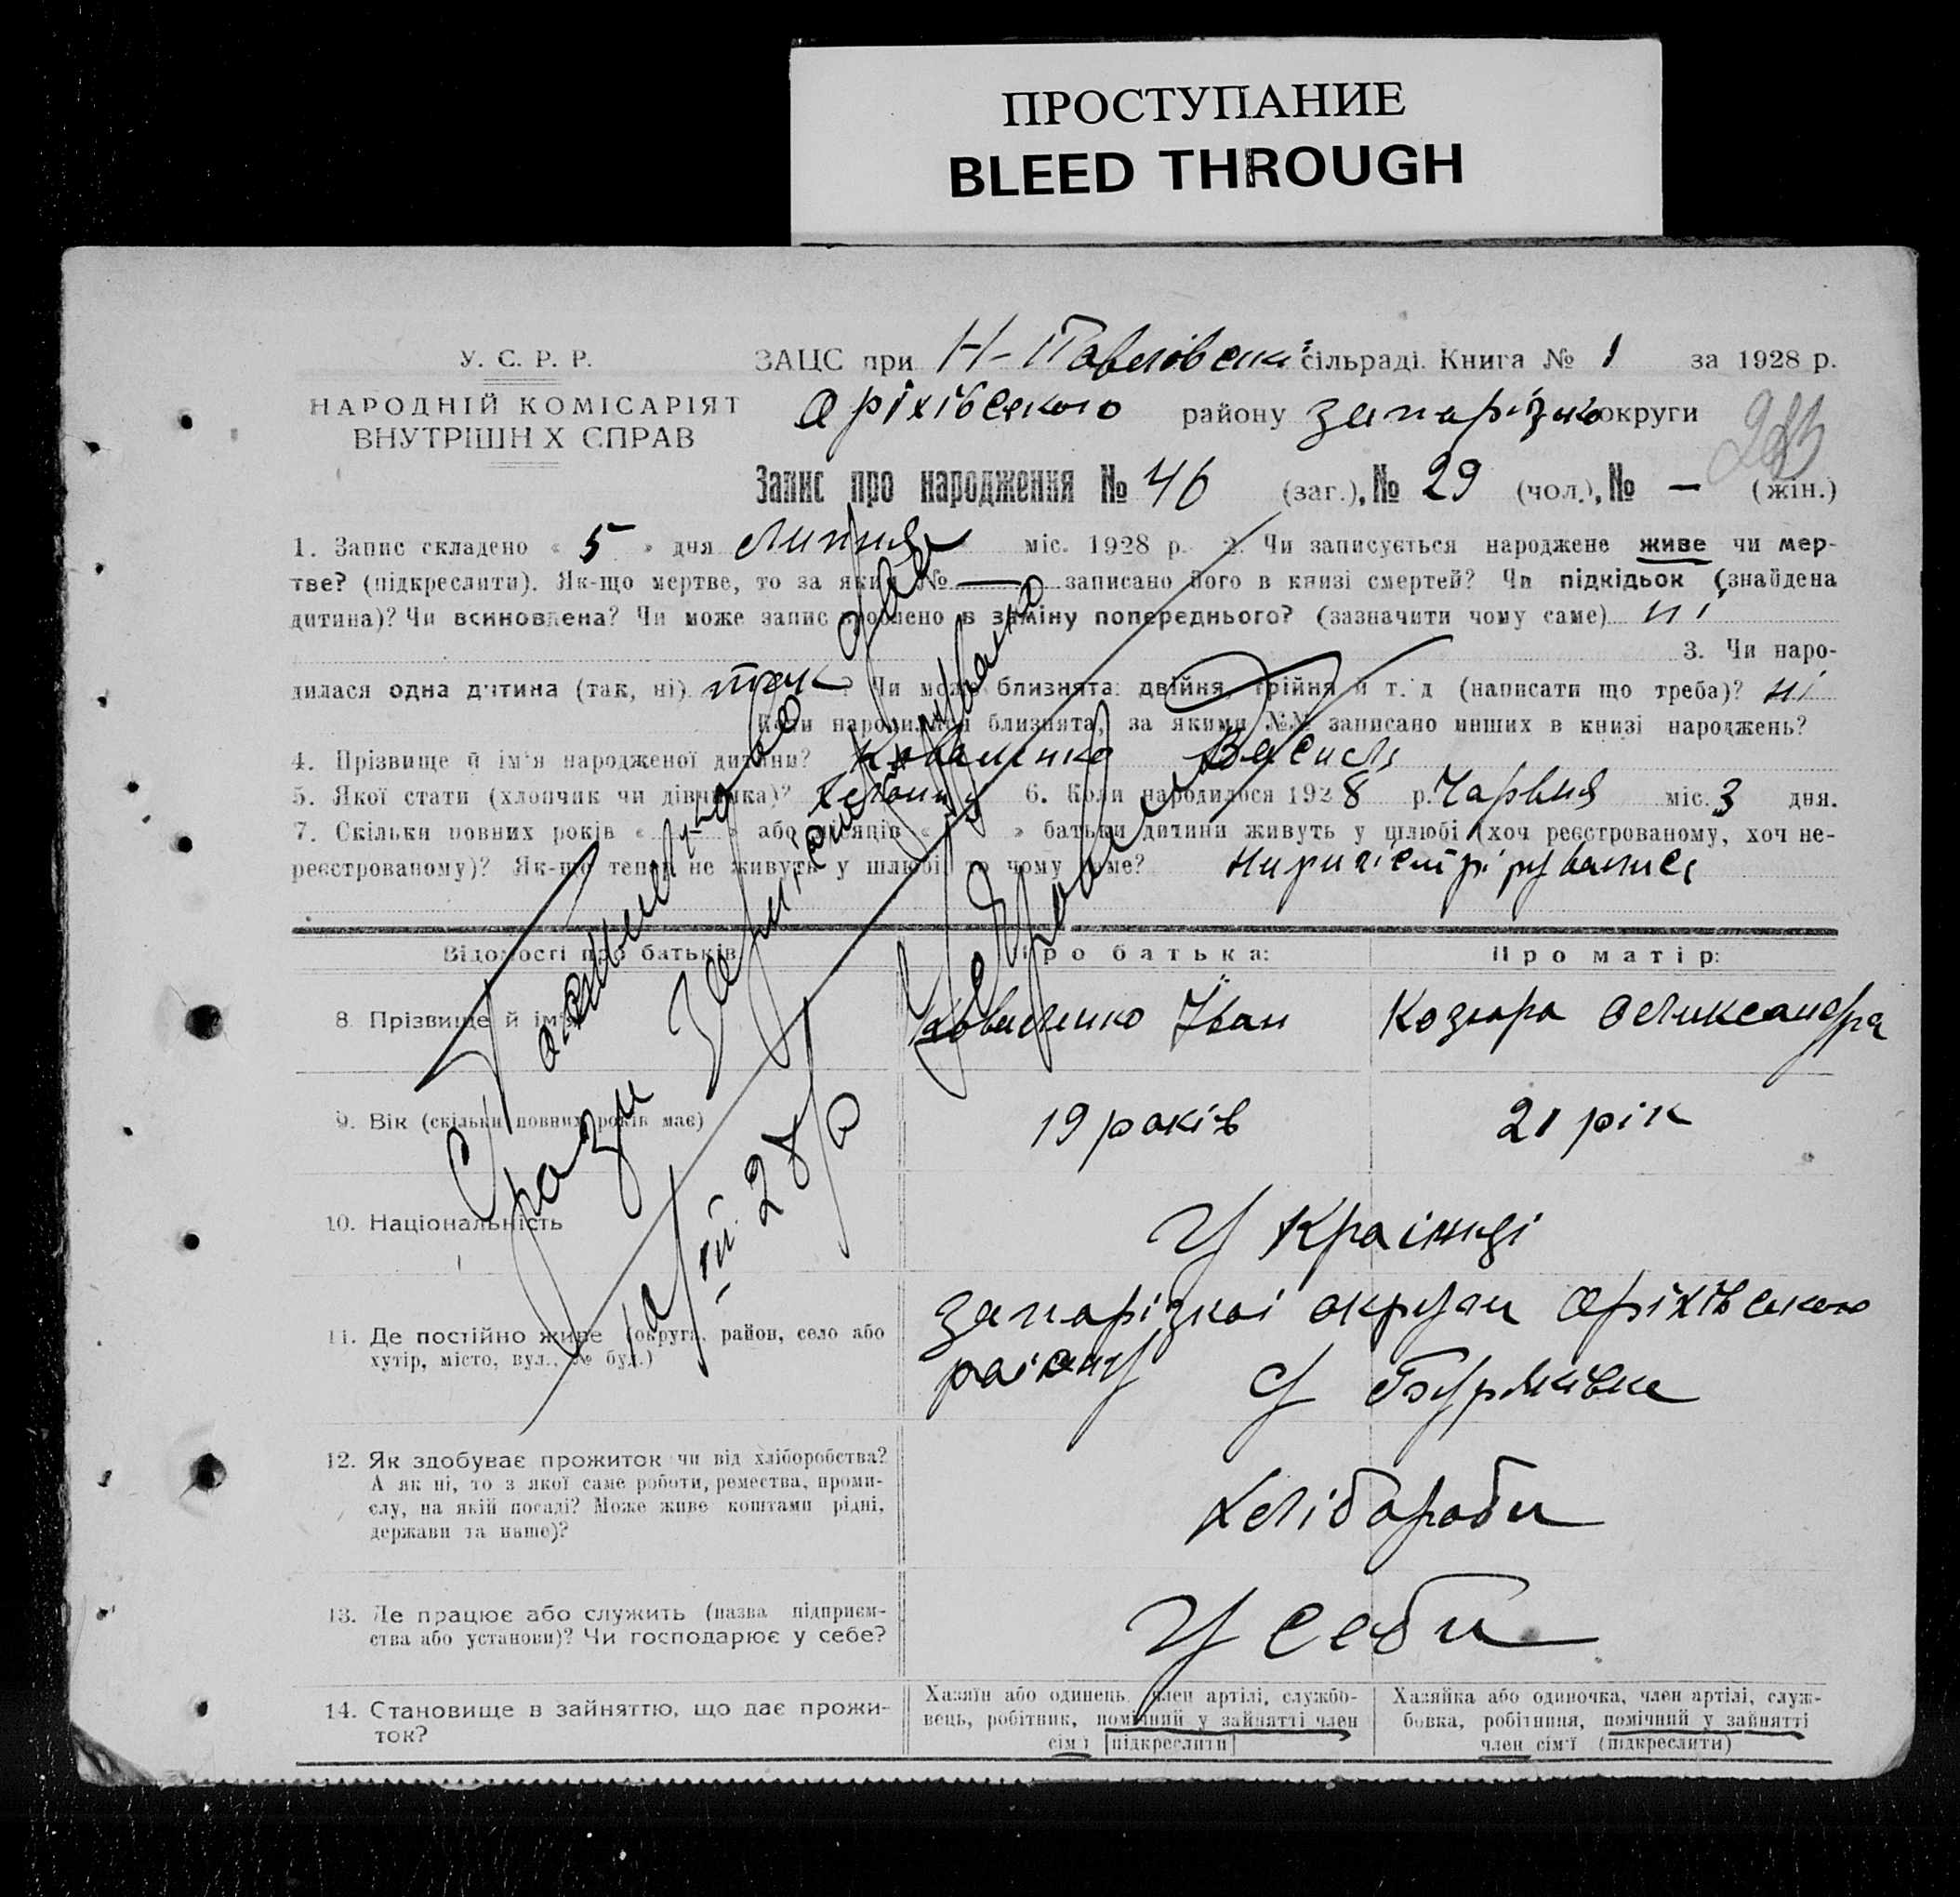 ПРОСТУПАНИЕ
BLEED THROUGH
У. С. Р. Р.
НАРОДНІЙ КОМІСАРІЯТ
ВНУТРІШН Х СПРАВ
ЗАЦС при Н-Павлівські сільраді. Книга № 1 за 1928 р.
Оріхівського району Запорізько округи
283
Запис про народження № 46 (заг.), № 29 (чол.), № — (жін.)
1. Запис складено « 5 » дня Липня міс. 1928 р. 2. Чи записується народжене живе чи мер-
тве? (підкреслити). Як-що мертве, то за яким № — записано його в книзі смертей? Чи підкідьок (знайдена
дитина)? Чи всиновлена? Чи може запис зроблено в заміну попереднього? (зазначити чому саме) ні
3. Чи наро-
дилася одна дитина (так, ні) так ? Чи може близнята: двійня, трійня й т. д (написати що треба)? ні
Коли народилися близнята, за якими №№ записано инших в книзі народжень?
4. Прізвище й ім'я народженої дитини? Коваленко Василь
5. Якої стати (хлопчик чи дівчинка)? Хлопчик 6. Коли народилося 1928 р. Чарвня міс. 3 дня.
7. Скільки повних років « » або місяців « » батьки дитини живуть у шлюбі (хоч реєстрованому, хоч не-
реєстрованому)? Як-що тепер не живуть у шлюбі то чому саме? нирнгістрірувались
Відомості про батьків
Про батька:
Про матір:
8. Прізвище й ім'я
Коваленко Іван
Козюра Олександра
9. Вік (скільки повних років має)
19 років
21 рік
10. Національність
Українці
11. Де постійно живе (округа, район, село або
хутір, місто, вул., № буд.)
Запарізкаї округи Оріхівського
раіону С Буряківка
12. Як здобуває прожиток чи від хліборобства?
А як ні, то з якої саме роботи, ремества, проми-
слу, на якій посаді? Може живе коштами рідні,
держави та инше)?
хліботороби
13. Де працює або служить (назва підприєм-
ства або установи)? Чи господарює у себе?
У себи
14. Становище в зайняттю, що дає прожи-
ток?
Хазяїн або одинець, член артілі, службо-
вець, робітник, помічний у зайнятті член
сім'ї [підкреслити]
Хазяйка або одиночка, член артілі, служ-
бовка, робітниця, помічний у зайнятті
член сім'ї (підкреслити)